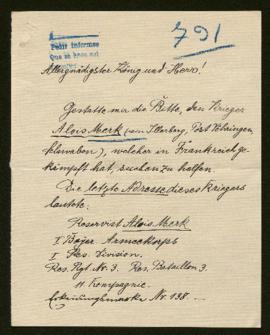 791
Petit informes
Que se haga así
Allergnädigster König und Herr!
Gestatte mir die Bitte, den Krieger
Alois Merk (von Illerberg, Post Vöhringen
Schwaben), welcher in Frankreich ge-
kämpft hat, suchen zu helfen.
Die letzte Adresse dieses Kriegers
lautete:
Reservist Alois Merk
I Bayer. Armeekorps
I Res. Division.
Res. Rgt. Nr. 3. Res. Bataillon 3.
11 Kompagnie.
Erkennungsmarke Nr. 198.